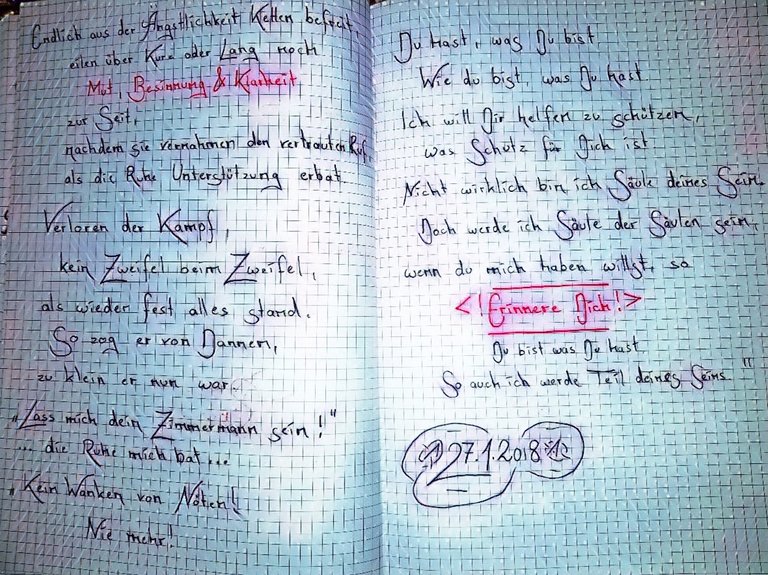 Endlich aus der Ängstlichkeit Ketten befreit,
eilen über Kurz oder Lang noch
Mut, Besinnung & Klarheit
zur Seit,
nachdem sie vernahmen den vertrauten Ruf,
als die Ruhe Unterstützung erbat
Verloren der Kampf,
kein Zweifel beim Zweifel,
als wieder fest alles stand.
So zog er von Dannen,
zu klein er nun war.
„Lass mich dein Zimmermann sein!"
... die Ruhe mich bat...
„Kein Wanken von Nöten!!
Nie mehr!
Du hast, was Du bist
Wie du bist, was Du hast
Ich will Dir helfen zu schützen,
was Schutz für Dich ist
Nicht wirklich bin ich Säule deines Sein.
Doch werde ich Säule der Säulen sein,
wenn du mich haben willst, so
<! Erinnere Dich! >
Du bist was Du hast
So auch ich werde Teil deines Seins"
27.1.2018